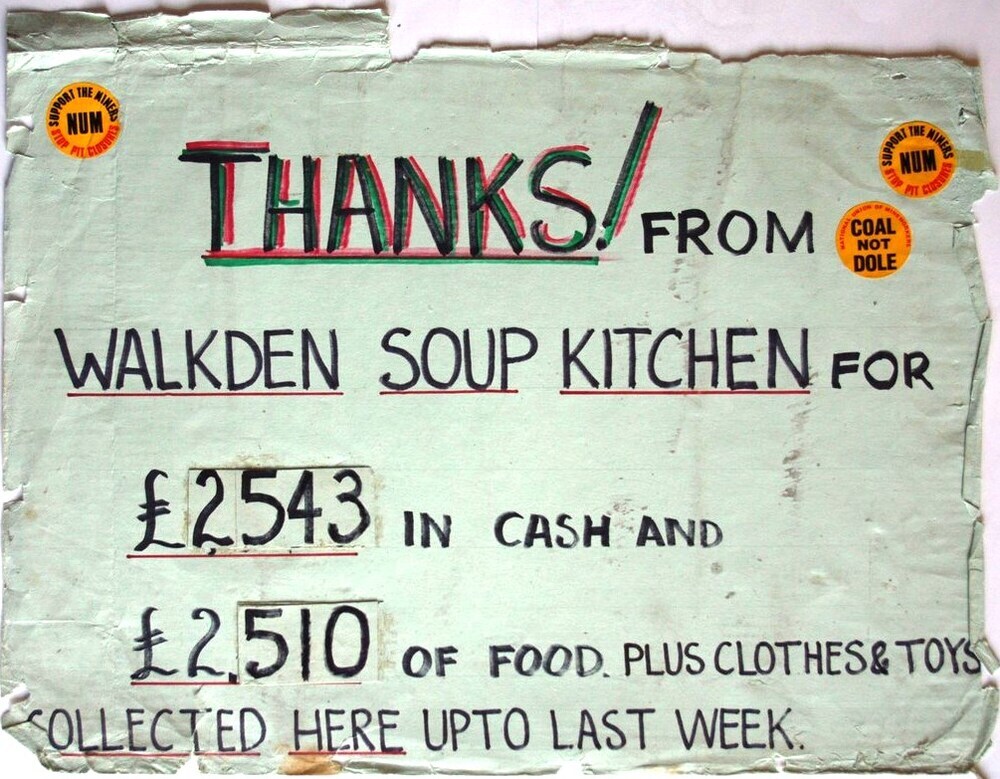 SUPPORT THE MINERS
NUM
STOP PIT CLOSURES
SUPPORT THE MINERS
NUM
STOP PIT CLOSURES
THANKS! FROM
NATIONAL UNION OF MINEWORKERS
COAL
NOT
DOLE
WALKDEN SOUP KITCHEN FOR
£2543 IN CASH AND
£2,510 OF FOOD. PLUS CLOTHES & TOYS
COLLECTED HERE UPTO LAST WEEK.